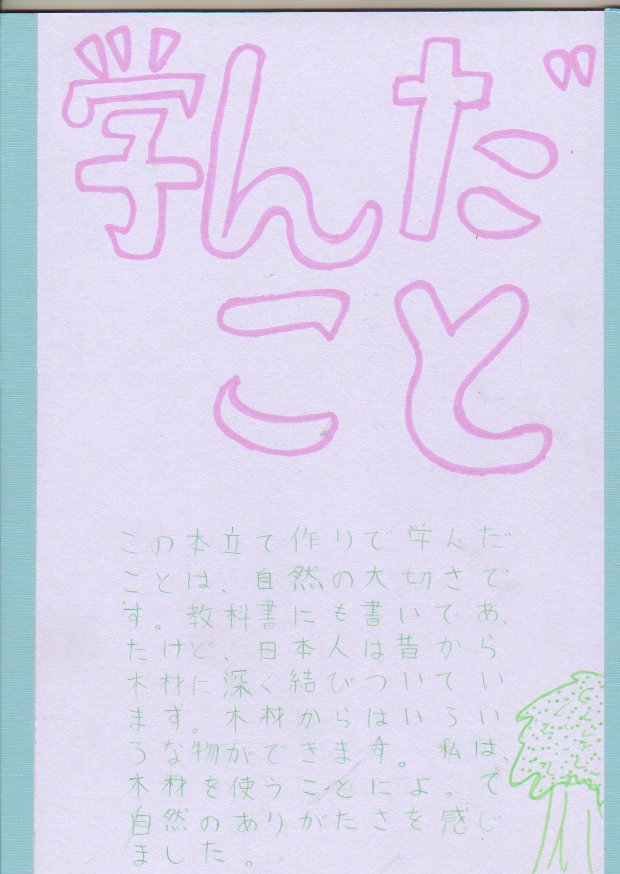 学んだ
こと
この本立て作りで学んだ
ことは、自然の大切さで
す。教科書にも書いてあっ
たけど、日本人は昔から
木材に深く結びついてい
ます。木材からはいろい
ろな物ができます。私は
木材を使うことによって
自然のありがたさを感じ
ました。